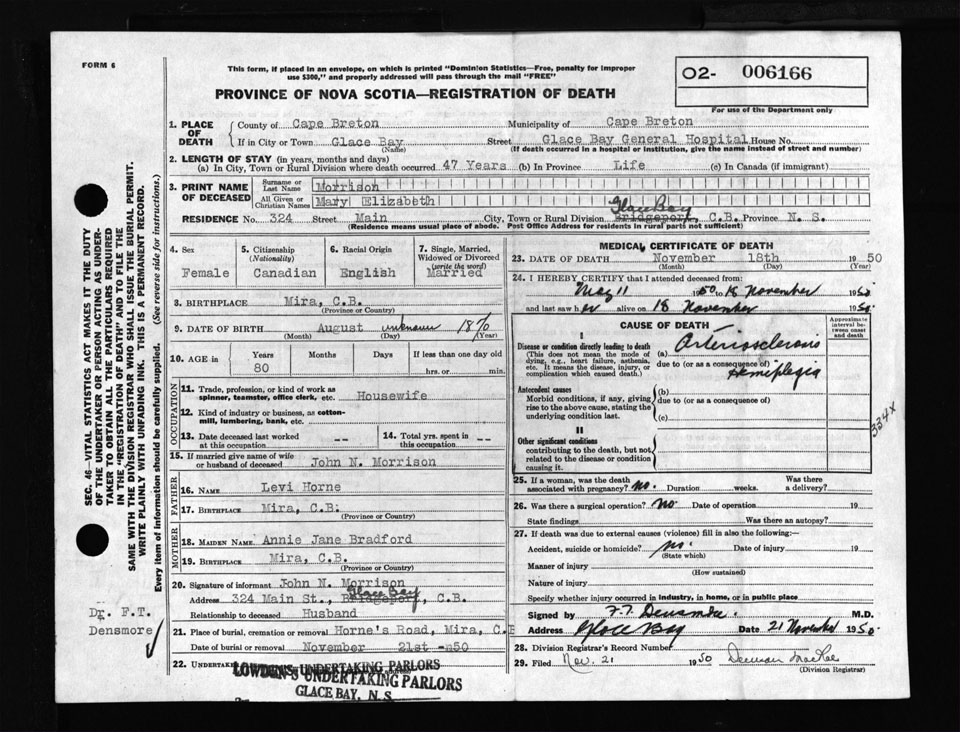 FORM 6
This form, if placed in an envelope, on which is printed "Dominion Statistics—Free, penalty for improper
use $300," and properly addressed will pass through the mail "FREE"
O2- 006166
For use of the Department only
PROVINCE OF NOVA SCOTIA—REGISTRATION OF DEATH
1. PLACE OF DEATH
County of Cape Breton Municipality of Cape Breton
If in City or Town Glace Bay Street Glace Bay General Hospital House No.
(Name) (If death occurred in a hospital or institution, give the name instead of street and number)
2. LENGTH OF STAY (in years, months and days)
(a) In City, Town or Rural Division where death occurred 47 Years (b) In Province Life (c) In Canada (if immigrant)
3. PRINT NAME OF DECEASED
Surname or Last Name Morrison
All Given or Christian Names Mary Elizabeth
RESIDENCE No. 324 Street Main City, Town or Rural Division Bridgeport, Glace Bay C.B. Province N. S.
(Residence means usual place of abode. Post Office Address for residents in rural parts not sufficient)
4. Sex Female
5. Citizenship (Nationality) Canadian
6. Racial Origin English
7. Single, Married, Widowed or Divorced (write the word) Married
8. BIRTHPLACE Mira, C.B.
(Province or Country)
9. DATE OF BIRTH August unknown 1870
(Month) (Day) (Year)
10. AGE in Years Months Days If less than one day old
80 hrs. or min.
OCCUPATION
11. Trade, profession, or kind of work as
spinner, teamster, office clerk, etc. Housewife
12. Kind of industry or business, as cotton-
mill, lumbering, bank, etc.
13. Date deceased last worked
at this occupation --
14. Total yrs. spent in
this occupation --
15. If married give name of wife
or husband of deceased John N. Morrison
FATHER
16. NAME Levi Horne
17. BIRTHPLACE Mira, C.B.
(Province or Country)
MOTHER
18. MAIDEN NAME Annie Jane Bradford
19. BIRTHPLACE Mira, C.B.
(Province or Country)
20. Signature of informant John N. Morrison
Address 324 Main St., Bridgeport, Glace Bay C.B.
Relationship to deceased Husband
21. Place of burial, cremation or removal Horne's Road, Mira, C.B
Date of burial or removal November 21st -n50
22. UNDERTAKER
LOWDEN'S UNDERTAKING PARLORS
LOWDEN'S UNDERTAKING PARLORS
GLACE BAY, N. S.
MEDICAL CERTIFICATE OF DEATH
23. DATE OF DEATH November 18th 1950
(Month) (Day) (Year)
24. I HEREBY CERTIFY that I attended deceased from:
May 11 1950 to 18 November 1950
and last saw her alive on 18 November 1950
CAUSE OF DEATH
Approximate interval between onset and death
I
Disease or condition directly leading to death
(This does not mean the mode of
dying, e.g., heart failure, asthenia,
etc. It means the disease, injury, or
complication which caused death.)
(a) Arteriosclerosis
due to (or as a consequence of)
Hemiplegia
Antecedent causes
Morbid conditions, if any, giving
rise to the above cause, stating the
underlying condition last.
(b)
due to (or as a consequence of)
(c)
334X
II
Other significant conditions
contributing to the death, but not
related to the disease or condition
causing it.
25. If a woman, was the death
associated with pregnancy? no. Duration weeks. Was there
a delivery?
26. Was there a surgical operation? no Date of operation 19
State findings Was there an autopsy?
27. If death was due to external causes (violence) fill in also the following:—
Accident, suicide or homicide? no. Date of injury 19
(State which)
Manner of injury
(How sustained)
Nature of injury
Specify whether injury occurred in industry, in home, or in public place
Signed by F.T. Densmore. M.D.
Address Glace Bay Date 21 November 1950
28. Division Registrar's Record Number
29. Filed Nov. 21 1950
(Division Registrar)
SEC. 46—VITAL STATISTICS ACT MAKES IT THE DUTY
OF THE UNDERTAKER OR PERSON ACTING AS UNDER-
TAKER TO OBTAIN ALL THE PARTICULARS REQUIRED
IN THE "REGISTRATION OF DEATH" AND TO FILE THE
SAME WITH THE DIVISION REGISTRAR WHO SHALL ISSUE THE BURIAL PERMIT.
WRITE PLAINLY WITH UNFADING INK. THIS IS A PERMANENT RECORD.
Every item of information should be carefully supplied. (See reverse side for instructions.)
Dr. F.T.
Densmore